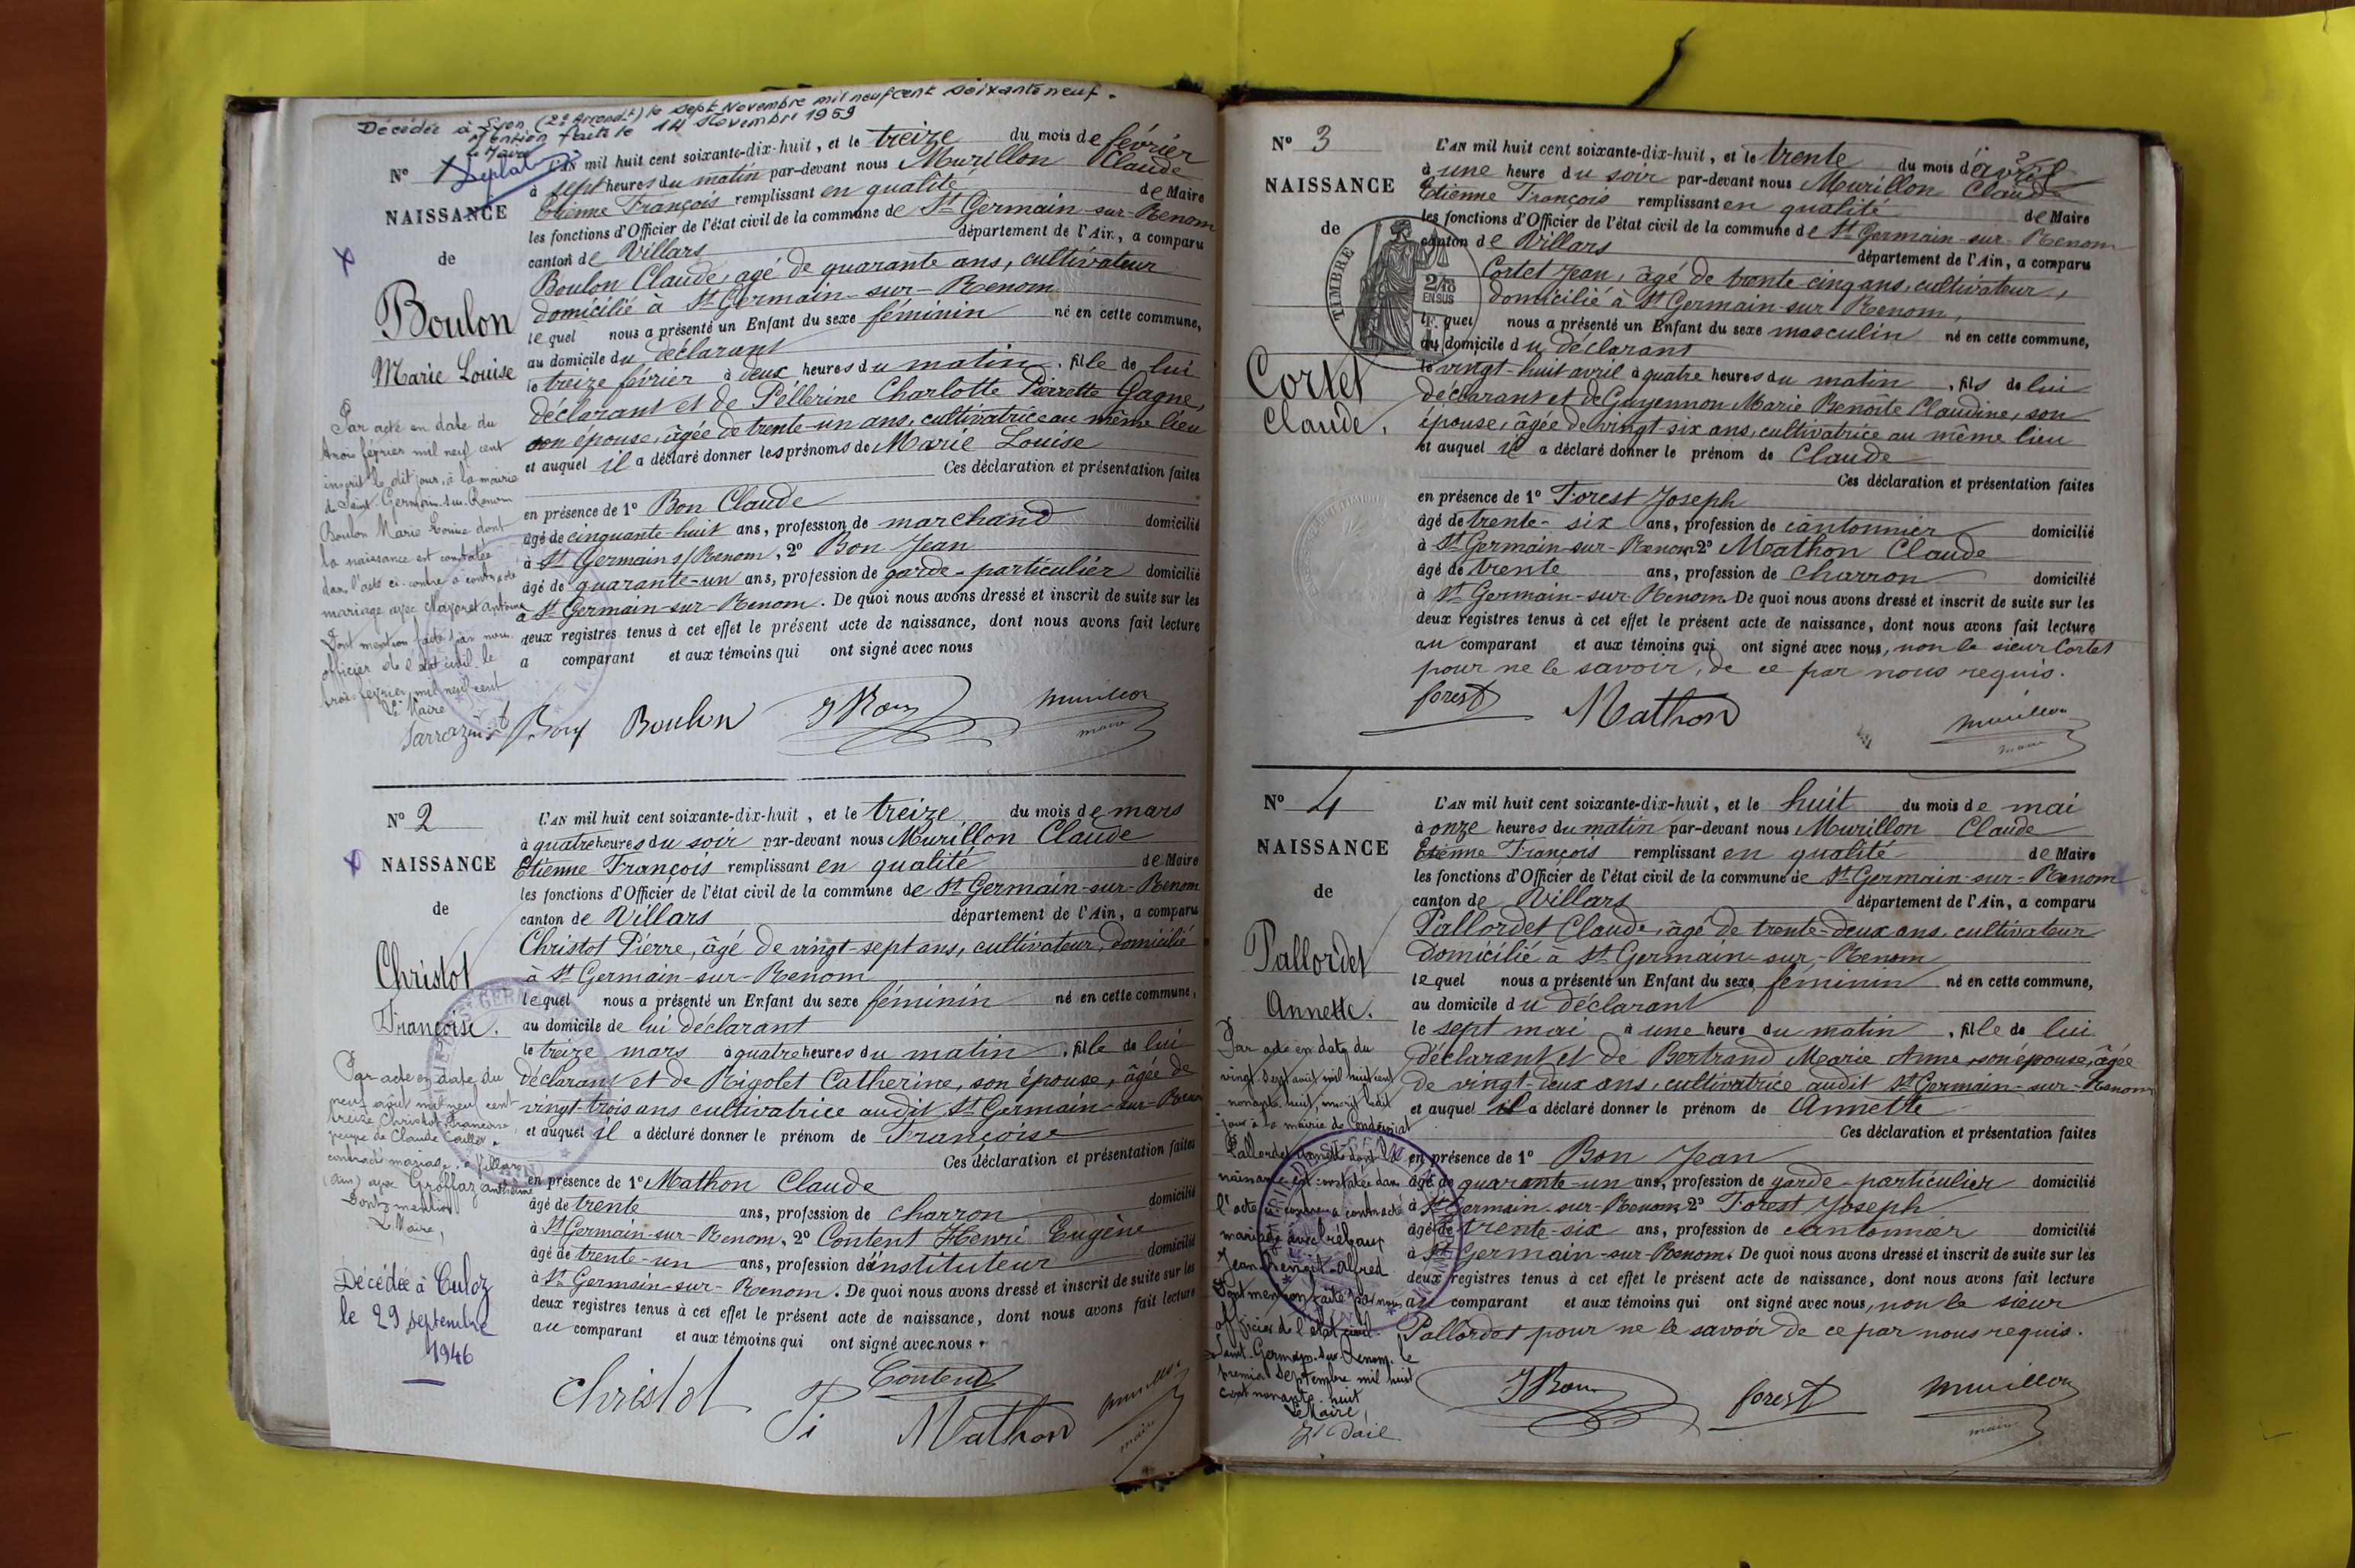 Décédée à Lyon (2e Arrondt) le sept Novembre mil neuf cent soixante neuf.
Mention faite le 14 Novembre 1959
Le Maire
N° 1
NAISSANCE
de
Boulon
Marie Louise
Par acte en date du
trois février mil neuf cent
inscrit le dit jour, à la mairie
de Saint Germain-sur-Renom
Boulon Marie Louise dont
la naissance est constatée
dans l'acte ci-contre a contracté
mariage avec Mayoret Antoine
Dont mention faite par nous
officier de l'état civil le
trois février mil neuf cent
Le Maire
L'AN mil huit cent soixante-dix-huit, et le treize du mois de février
à sept heures du matin par-devant nous Murillon Claude
Etienne François remplissant en qualité de Maire
les fonctions d'Officier de l'état civil de la commune de St Germain-sur-Renom
canton de Villars département de l'Ain, a comparu
Boulon Claude, agé de quarante ans, cultivateur
domicilié à St Germain-sur-Renom
lequel nous a présenté un Enfant du sexe féminin né en cette commune,
au domicile du déclarant
le treize février à deux heures du matin, fille de lui
déclarant et de Péllerine Charlotte Pierrette Gagne,
son épouse, âgée de trente-un ans, cultivatrice au même lieu
et auquel il a déclaré donner les prénoms de Marie Louise
Ces déclaration et présentation faites
en présence de 1° Bon Claude
âgé de cinquante-huit ans, profession de marchand domicilié
à St Germain s/Renom, 2° Bon Jean
âgé de quarante-un ans, profession de garde-particulier domicilié
à St Germain-sur-Renom. De quoi nous avons dressé et inscrit de suite sur les
deux registres tenus à cet effet le présent acte de naissance, dont nous avons fait lecture
a comparant et aux témoins qui ont signé avec nous
Bon Boulon J Bon Murillon
maire
N° 2
NAISSANCE
de
Christot
Françoise.
Par acte en date du
neuf août mil neuf cent
treize Christot Françoise
veuve de Claude Caillet
contracté mariage, à Villars
(Ain) avec Groffaz Anthelme
Dont mention
Le Maire,
Décédée à Culoz
le 29 septembre
1946
L'AN mil huit cent soixante-dix-huit, et le treize du mois de mars
à quatre heures du soir par-devant nous Murillon Claude
Etienne François remplissant en qualité de Maire
les fonctions d'Officier de l'état civil de la commune de St Germain-sur-Renom
canton de Villars département de l'Ain, a comparu
Christot Pierre, âgé de vingt-sept ans, cultivateur, domicilié
à St Germain-sur-Renom
lequel nous a présenté un Enfant du sexe féminin né en cette commune,
au domicile de lui déclarant
le treize mars à quatre heures du matin, fille de lui
déclarant et de Rigolet Catherine, son épouse, âgée de
vingt-trois ans cultivatrice audit St Germain-sur-Renom
et auquel il a déclaré donner le prénom de Françoise
Ces déclaration et présentation faites
en présence de 1° Mathon Claude
âgé de trente ans, profession de charron domicilié
à St Germain-sur-Renom, 2° Content Henri Eugène
âgé de trente-un ans, profession d'instituteur domicilié
à St Germain-sur-Renom. De quoi nous avons dressé et inscrit de suite sur les
deux registres tenus à cet effet le présent acte de naissance, dont nous avons fait lecture
au comparant et aux témoins qui ont signé avec nous.
Christot Pi Content
Mathon Murillon
maire
N° 3
NAISSANCE
de
TIMBRE
2/10
EN SUS
Cortet
Claude.
L'AN mil huit cent soixante-dix-huit, et le trente du mois d'avril
à une heure du soir par-devant nous Murillon Claude
Etienne François remplissant en qualité de Maire
les fonctions d'Officier de l'état civil de la commune de St Germain-sur-Renom
canton de Villars département de l'Ain, a comparu
Cortet Jean, âgé de trente-cinq ans, cultivateur,
domicilié à St Germain-sur Renom,
lequel nous a présenté un Enfant du sexe masculin né en cette commune,
au domicile du déclarant
le vingt-huit avril à quatre heures du matin, fils de lui
déclarant et de Guyennon Marie Benoîte Claudine, son
épouse, âgée de vingt-six ans, cultivatrice au même lieu
et auquel il a déclaré donner le prénom de Claude
Ces déclaration et présentation faites
en présence de 1° Forest Joseph
âgé de trente-six ans, profession de cantonnier domicilié
à St Germain-sur-Renom 2° Mathon Claude
âgé de trente ans, profession de charron domicilié
à St Germain-sur-Renom. De quoi nous avons dressé et inscrit de suite sur les
deux registres tenus à cet effet le présent acte de naissance, dont nous avons fait lecture
au comparant et aux témoins qui ont signé avec nous, non le sieur Cortet
pour ne le savoir, de ce par nous requis.
forest Mathon Murillon
maire
N° 4
NAISSANCE
de
Pallordet
Annette.
Par acte en date du
vingt sept août mil huit cent
nonante huit, inscrit ledit
jour à la mairie de Condeissiat
Pallordet Annette dont la
naissance est constatée dans
l'acte ci-contre a contracté
mariage avec
Jean Benoit Alfred
Dont mention faite par nous
officier de l'état civil
Saint-Germain-sur-Renom, le
premier septembre mil huit
cent nonante huit
Le Maire,
L'AN mil huit cent soixante-dix-huit, et le huit du mois de mai
à onze heures du matin par-devant nous Murillon Claude
Etienne François remplissant en qualité de Maire
les fonctions d'Officier de l'état civil de la commune de St Germain-sur-Renom
canton de Villars département de l'Ain, a comparu
Pallordet Claude, âgé de trente-deux ans, cultivateur
domicilié à St Germain-sur-Renom
lequel nous a présenté un Enfant du sexe féminin né en cette commune,
au domicile du déclarant
le sept mai à une heure du matin, fille de lui
déclarant et de Bertrand Marie Anne, son épouse, âgée
de vingt-deux ans, cultivatrice audit St Germain-sur-Renom
et auquel il a déclaré donner le prénom de Annette
Ces déclaration et présentation faites
en présence de 1° Bon Jean
âgé de quarante-un ans, profession de garde-particulier domicilié
à St Germain-sur-Renom 2° Forest Joseph
âgé de trente-six ans, profession de cantonnier domicilié
à St Germain-sur-Renom. De quoi nous avons dressé et inscrit de suite sur les
deux registres tenus à cet effet le présent acte de naissance, dont nous avons fait lecture
au comparant et aux témoins qui ont signé avec nous, non le sieur
Pallordet pour ne le savoir de ce par nous requis.
J Bon forest Murillon
maire